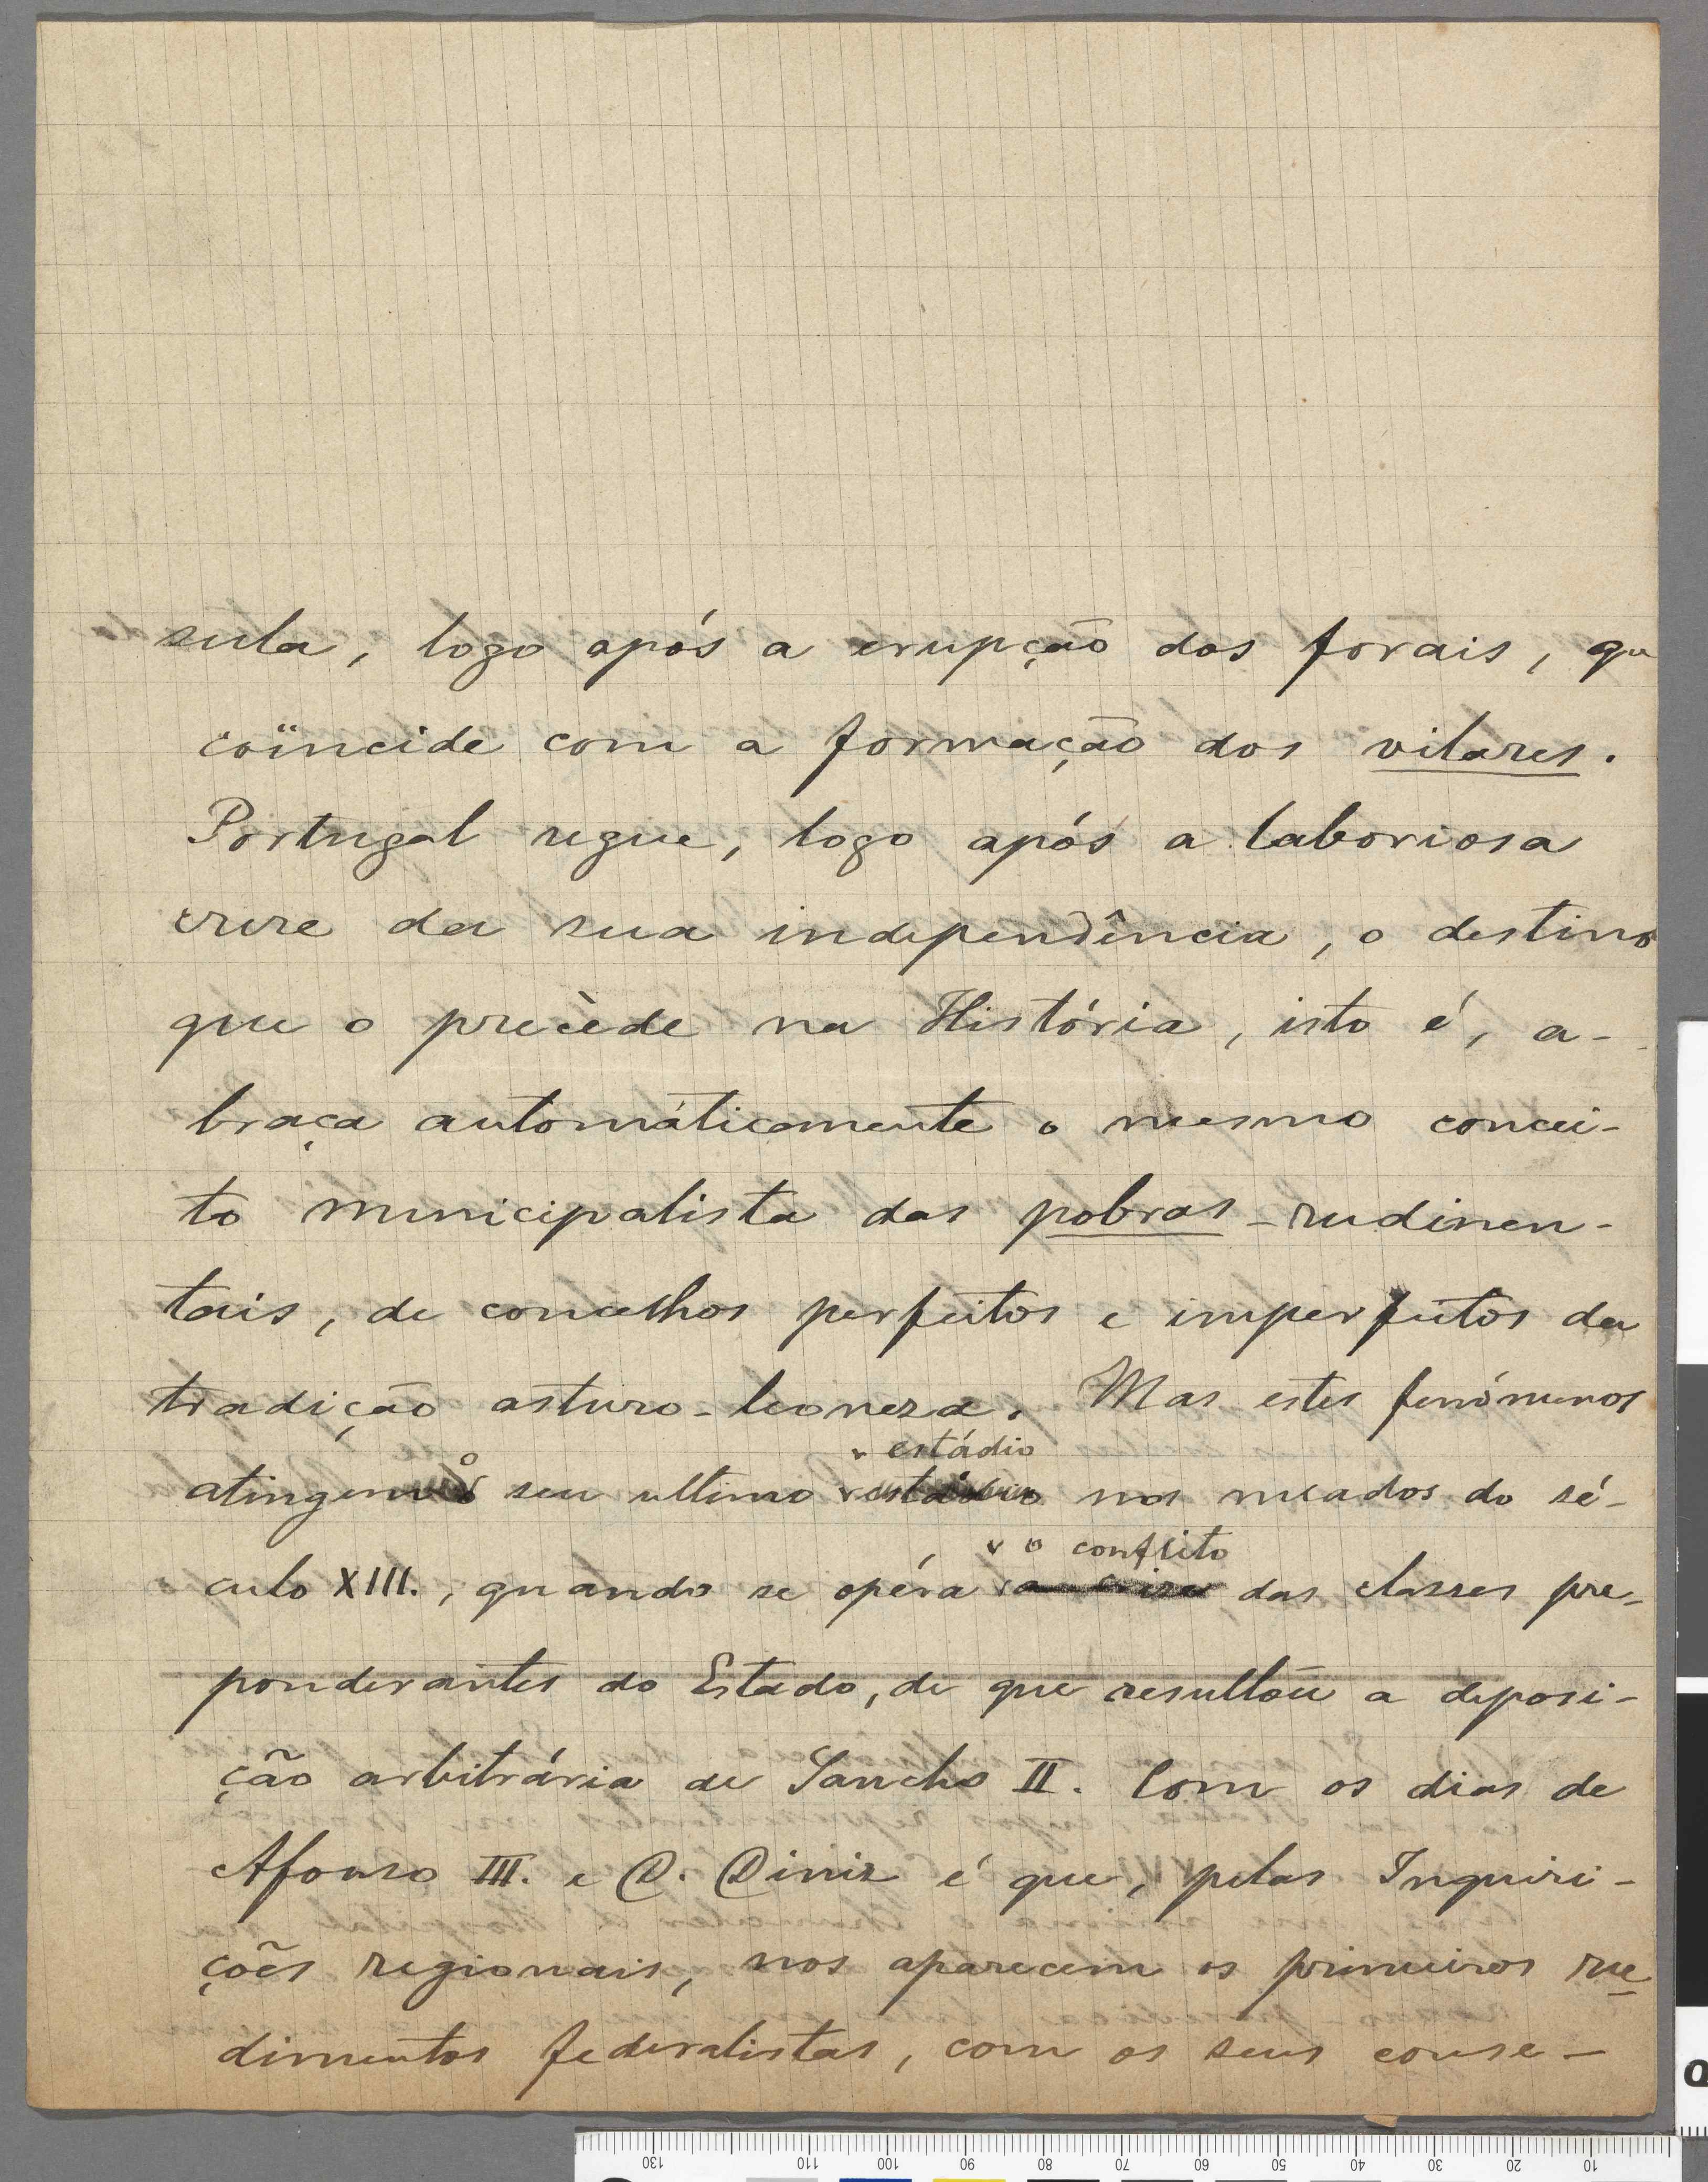 sula, logo após a erupção dos forais, que
coïncide com a formação dos vilares.
Portugal segue, logo após a laboriosa
crise da sua independência, o destino
que o precède na História, isto é, a-
braça automáticamente o mesmo concei-
to municipalista das pobras-rudimen-
tais, de concelhos perfeitos e imperfeitos da
tradição asturo-leoneza. Mas estes fenómenos
estádio
atingem o seu ultimo nos meados do sé-
o conflito
culo XIII., quando se opéra a crise das classes pre-
ponderantes do Estado, de que resultou a deposi-
ção arbitrária de Sancho II. Com os dias de
Afonso III. e D. Diniz é que, pelas Inquiri-
ções regionais, nos aparecem os primeiros ru-
dimentos federalistas, com os seus conse-
130 110 100 90 80 70 60 50 40 30 20 10